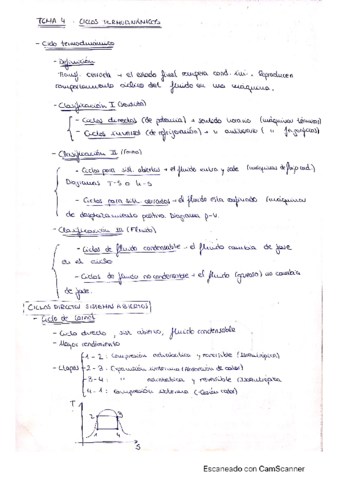 TEMA 4 - CICLOS TERMODINÁMICOS
- Ciclo termodinámico
- Definición
Transf. cerrada → el estado final recupera cond. ini. Reproducen
comportamiento cíclico del fluido en una máquina.
- Clasificación I (sentido)
- Ciclos directos (de potencia) → sentido horario (máquinas térmicas)
- Ciclos inversos (de refrigeración) → " antihorario ( " frigoríficas)
- Clasificación II (forma)
- Ciclos para sist. abiertos → el fluido entra y sale (máquinas de flujo cont.)
Diagramas T-S o h-S
- Ciclos para sist. cerrados → el fluido está confinado (máquinas
de desplazamiento positivo. Diagrama p-V.
- Clasificación III (Fluido)
- Ciclos de fluido condensable → el fluido cambia de fase
en el ciclo
- Ciclos de fluido no condensable → el fluido (gaseoso) no cambia
de fase.
CICLOS DIRECTOS SISTEMAS ABIERTOS
- Ciclo de Carnot
- Ciclo directo, sist. abierto, fluido condensable
- Mayor rendimiento
1 - 2: Compresión adiabática y reversible (Isentrópica)
- Etapas 2 - 3: Expansión isoterma (Absorción de calor)
3 - 4: " adiabática y reversible (Isentrópica)
4 - 1: Compresión isoterma (Cesión calor)
T
2 3
1 4
S
Escaneado con CamScanner